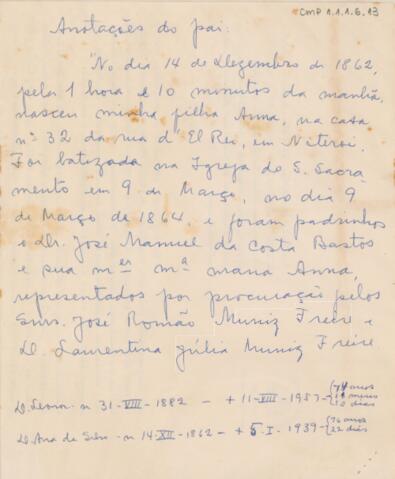 CMP 1.1.1.6.13
Anotações do pai:
"No dia 14 de Dezembro de 1862,
pela 1 hora e 10 minutos da manhã,
nasceu minha filha Anna, na casa
nº 32 da rua d'El Rei, em Niteroi.
Foi batizada na Igreja do S. Sacra
mento em 9 de Março, no dia 9
de Março de 1864, e foram padrinhos
o Dr. José Manuel da Costa Bastos
e sua mer mª mana Anna,
representados por procuração pelos
Snrs. José Romão Muniz Freire e
D. Laurentina Julia Muniz Freire.
D. Leonor - n 31-VIII-1882 - + 11-VIII-1957 - { 74 anos
11 meses
dias
D. Ana de Silos - n 14-XII-1862 - + 5-I-1939 - { 76 anos
22 dias